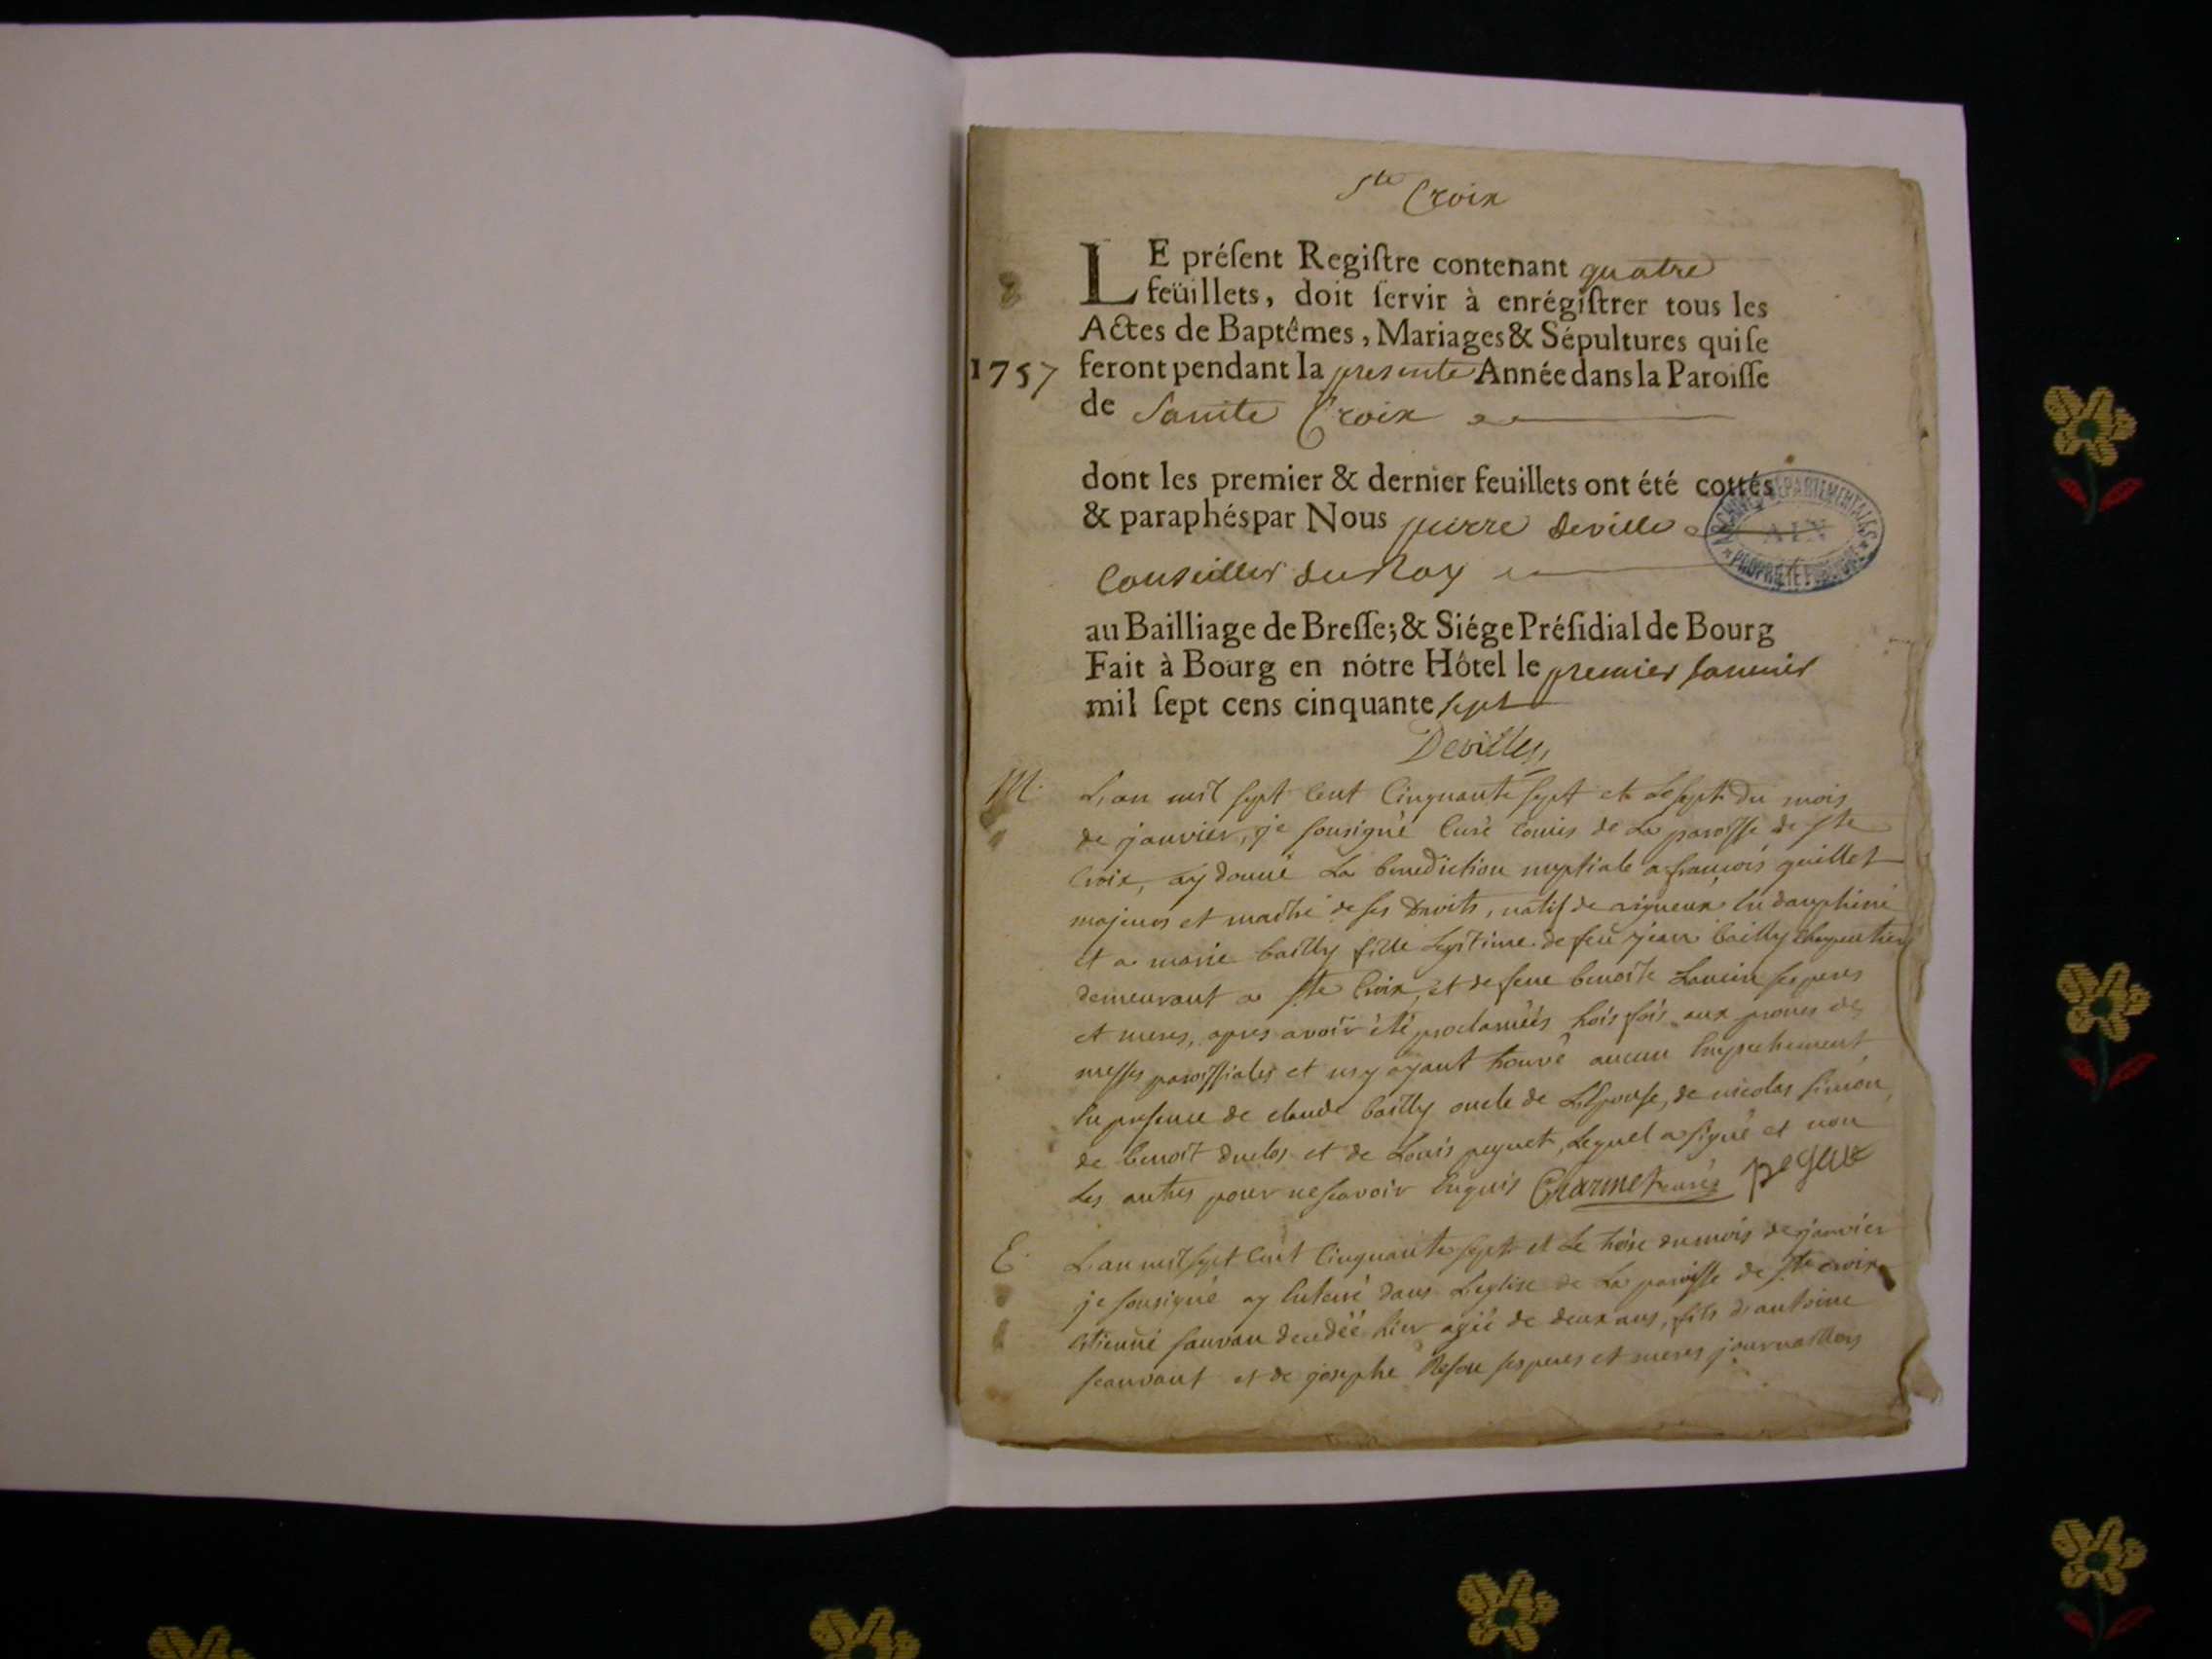 Ste Croix
LE préſent Regiſtre contenant quatre
feüillets, doit ſervir à enrégiſtrer tous les
Actes de Baptêmes, Mariages & Sépultures qui ſe
1757 feront pendant la presente Année dans la Paroiſſe
de Sainte Croix
dont les premier & dernier feuillets ont été cottés
& paraphés par Nous pierre Deville
ARCHIVES DÉPARTEMENTALES
AIN
PROPRIÉTÉ PUBLIQUE
Conseiller du Roy
au Bailliage de Breſſe; & Siége Préſidial de Bourg
Fait à Bourg en nôtre Hôtel le premier Janvier
mil ſept cens cinquante sept
Deville
M. L'an mil sept Cent Cinquante sept et Le sept du mois
de janvier, je sousigné Curé Comis de La paroisse de ste
Croix, ay donné La benediction nuptiale a françois guillet
majeur et maitre de ses Droits, natif de en dauphiné
et a marie bailly fille Legitime de feu jean bailly charpentier
demeurant a ste Croix, et de feue benoite ses peres
et meres, apres avoir été proclamées trois fois aux prones des
messes paroissiales et n'y ayant trouvé aucun Empechement
En presence de claude bailly oncle de L'Epouse, de nicolas simon,
de benoit duclos et de Louis peguet, Lequel a signé et non
Les autres pour ne scavoir Enquis Charmet curé peguet
E. L'an mil sept Cent Cinquante sept et Le treise du mois de janvier
je sousigné ay Enterré dans L'eglise de La paroisse de ste croix
Etienne sauvan decedéé hier agéé de deux ans, fils d'antoine
scauvant et de josephe ses peres et meres journaillers